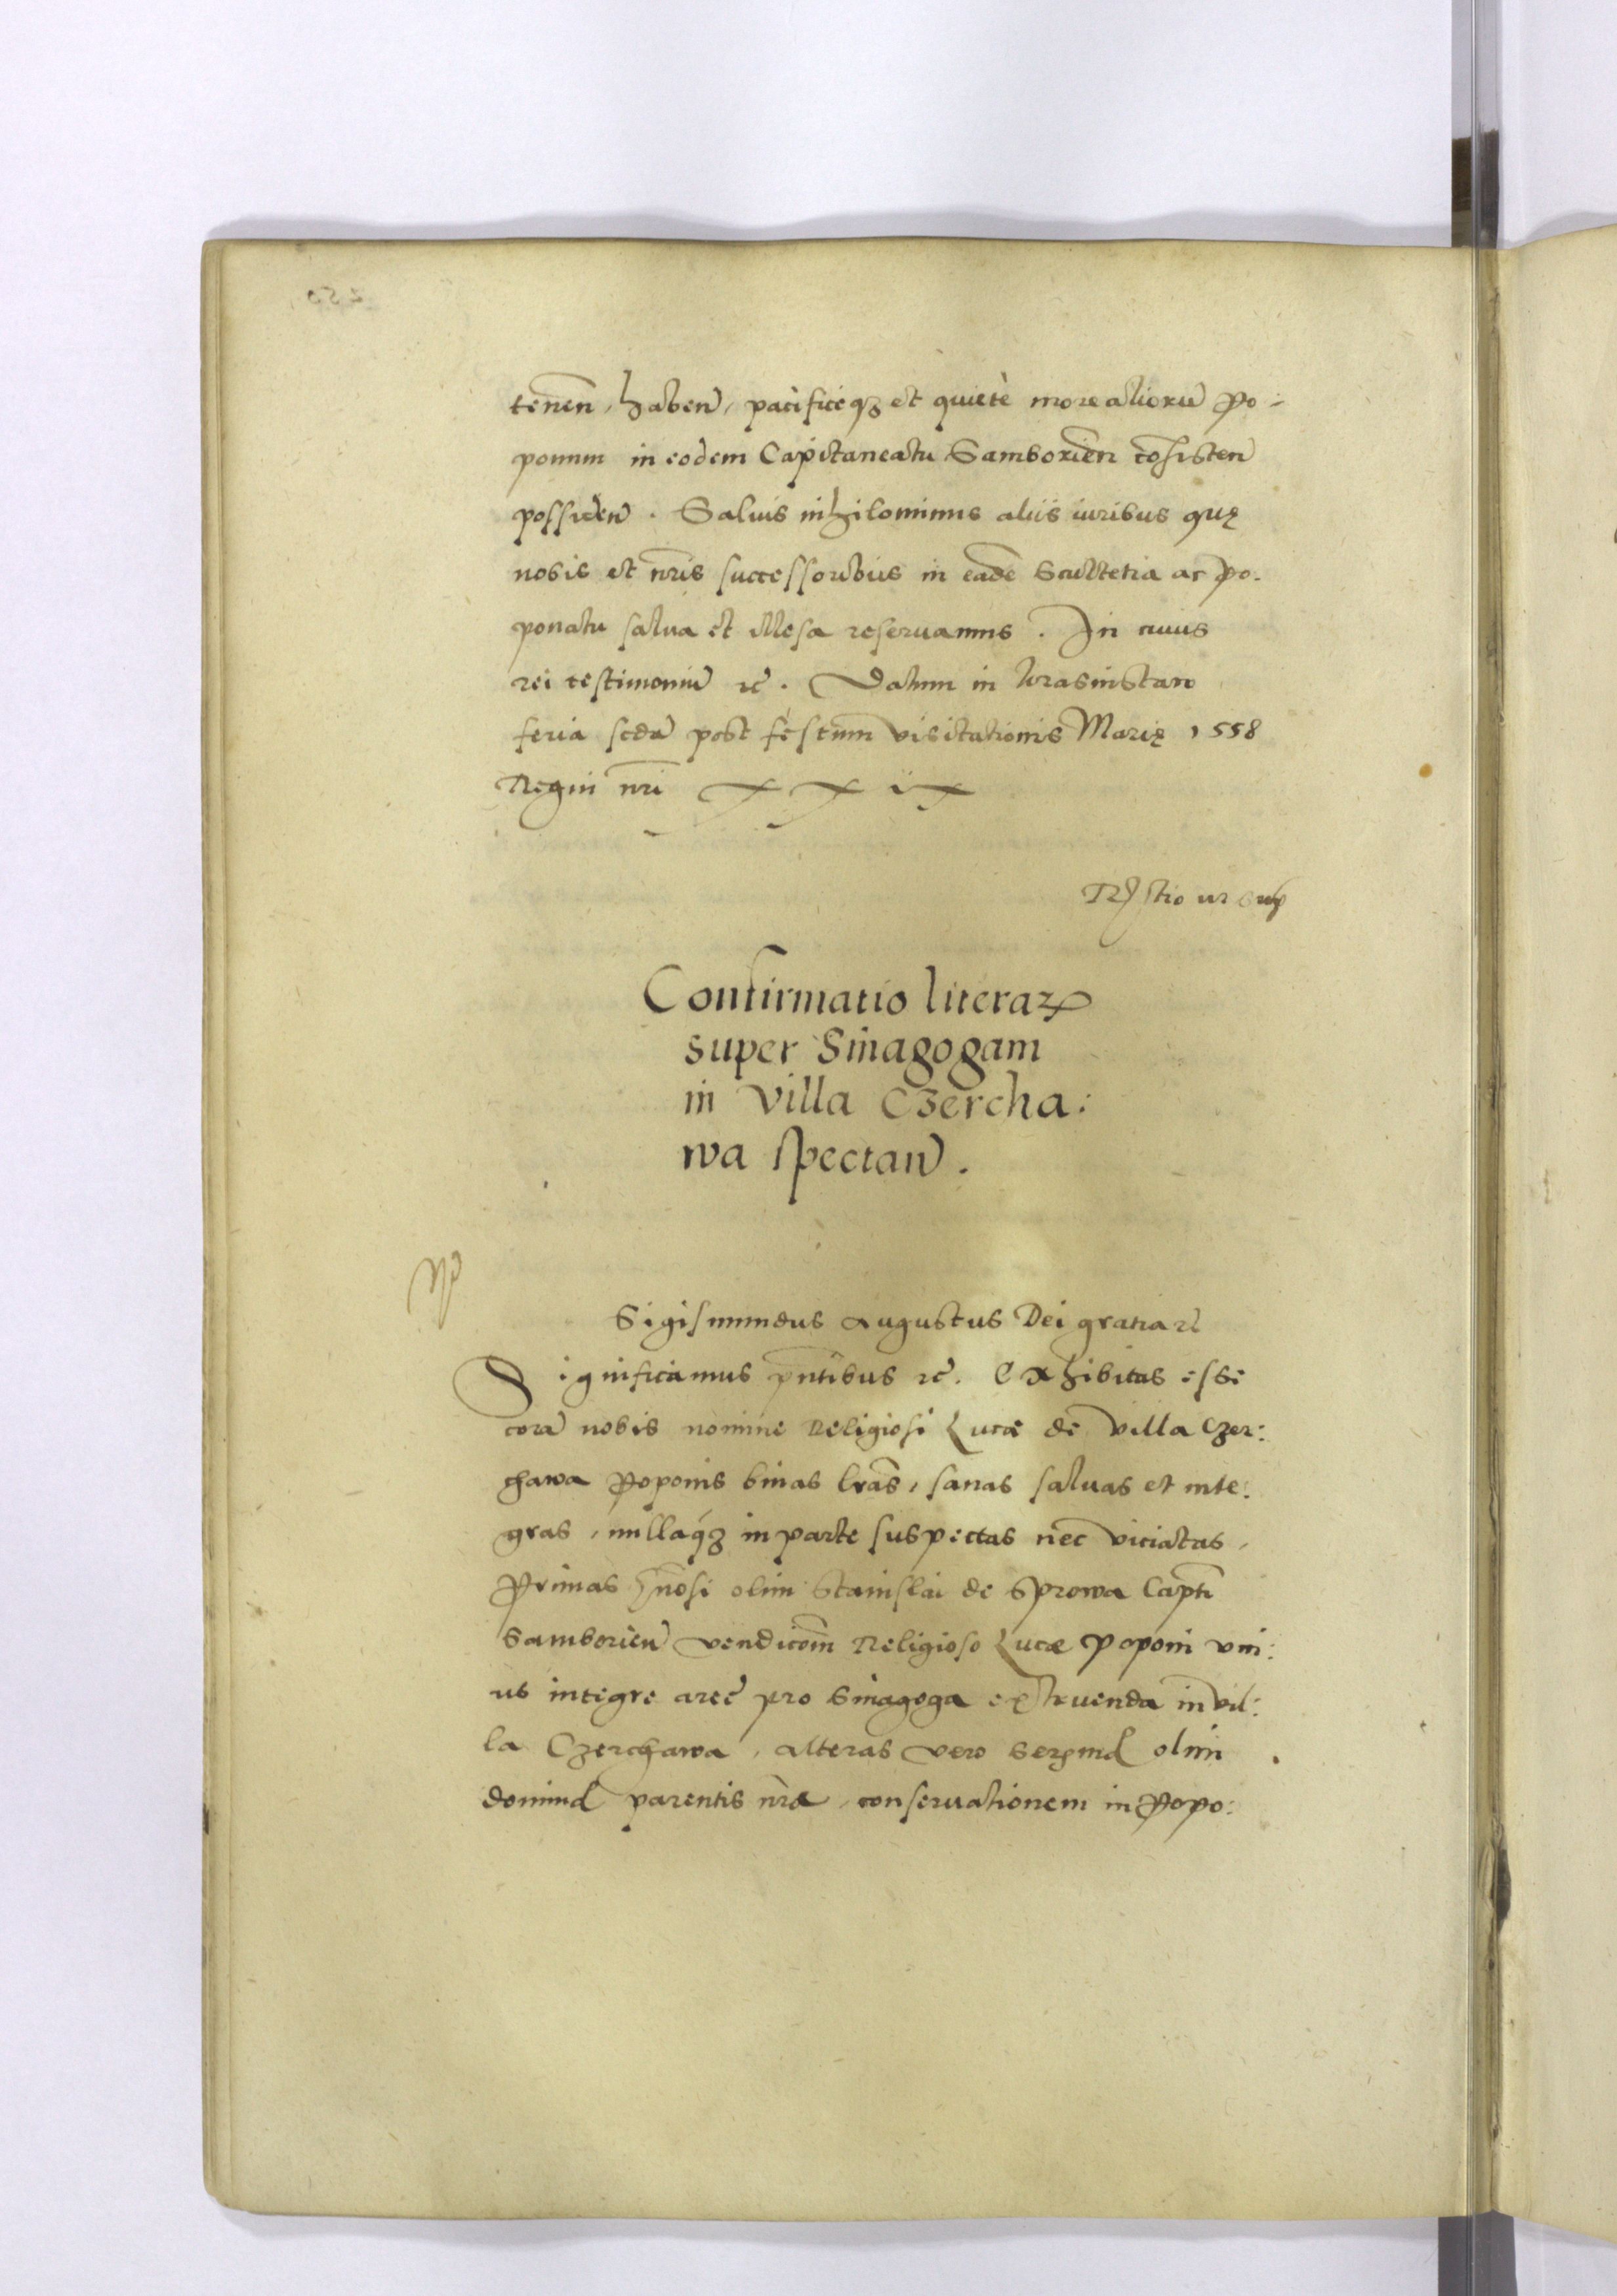 tenen̄, haben̄, pacificeqȝ et quietè more aliorū Po-
ponum in eodem Capitaneatu Samborien̄ cōsisten̄
possiden̄. Saluis nihilominus aliis iuribus quę
nobis et nr̄is successoribus in eadē Scultetia ac Po:
ponatu salua et illesa reseruamus. In cuius
rei testimoniū rc̄. Datum in Crasnistaw
feria scda post festum visitationis Marię 1558
Regni nr̄i xxix
Confirmatio literaꝝ
super Sinagogam
in villa Czercha:
wa spectan̄.
Sigismundus Augustus Dei gratia rc̄
Significamus pn̄tibus rc̄. Exhibitas esse
corā nobis nomine Religiosi Lucæ de villa Czer:
chawa Poponis binas lrās, sanas saluas et inte:
gras, nullaqȝ in parte suspectas nec viciatas,
Primas Gn̄osi olim Stanislai de Sprowa Capt̄i
Samborien̄ vendicōm̄ Religioso Lucæ Poponi vni:
us integre areę pro Sinagoga extruenda in vil:
la Czerchawa, alteras vero olim
parentis nr̄æ, conseruationem in Popo: